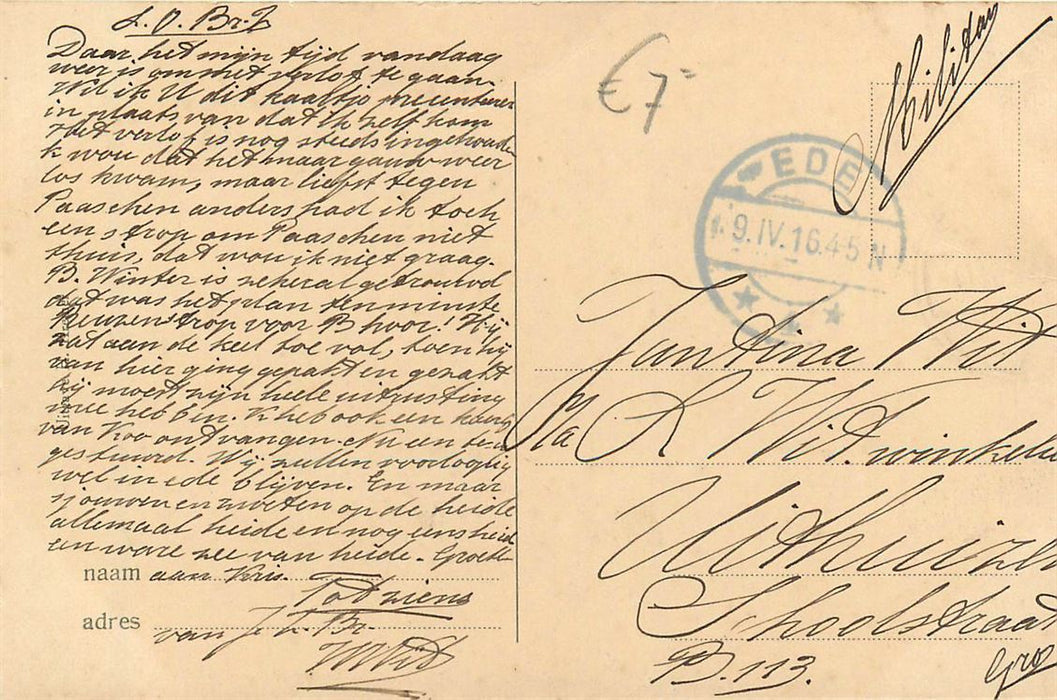 L. O. Br. Z
Daar het mijn tijd vandaag
weer is om met verlof te gaan
Wil ik U dit kaaltje presenteeren
in plaats van dat ik zelf kom
Het verlof is nog steeds ingehouden
k wou dat het maar gauw weer
los kwam, maar liefst tegen
Paaschen anders had ik toch
een strop om Paaschen niet
thuis, dat wou ik niet graag.
B. Winter is getrouwd
dat was het plan tenminste
Reuzenstrop voor B hoor! Hij
zat aan de keel toe vol, toen hij
van hier ging gepakt en gezakt
hij moest zijn heele uitrusting
mee hebben. K heb ook een kaart
van Koo ontvangen. Nu een
gestuurd. Wij zullen voorloopig
wel in ede blijven. En maar
sjouwen en zweten op de heide
allemaal heide en nog eens heide
een ware zee van heide. Groeten
naam aan Kris.
Tot ziens
adres
van Je L. Br.
Wit
€ 7-
Militair
EDE
9.IV.16.4-5 N
Jantina Wit
p/a R Wit. winkelier
Uithuizen
Schoolstraat
B. 113. Gron